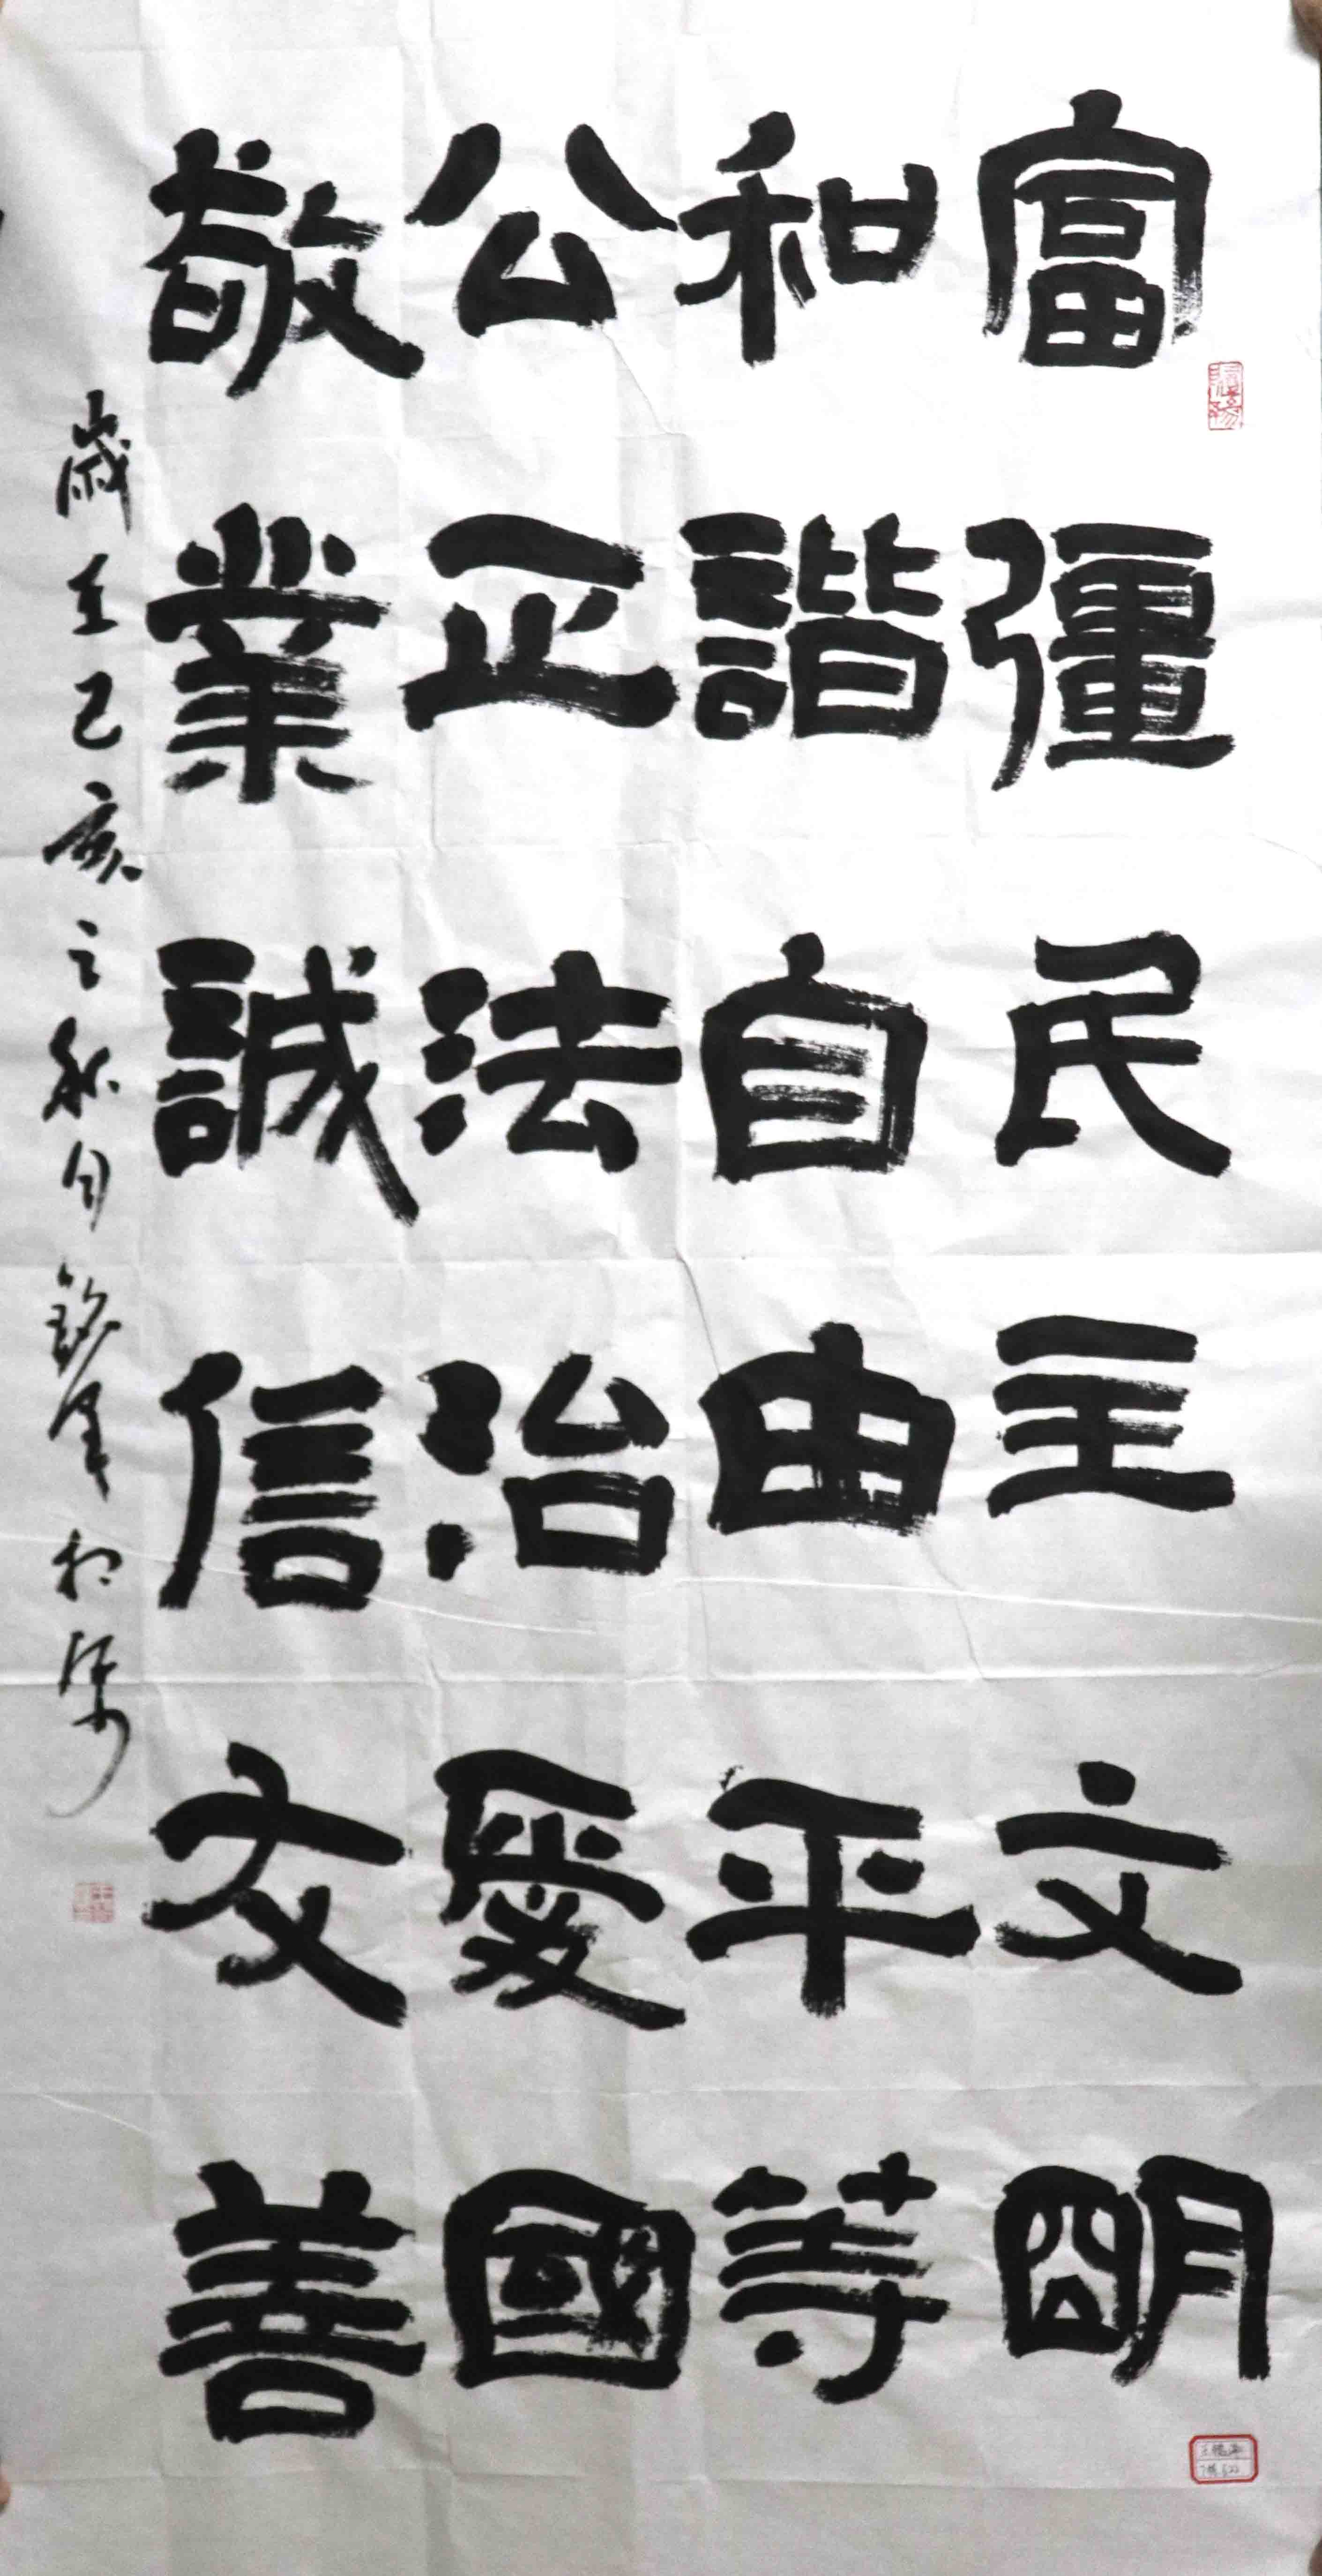 富彊民主文明
和諧自由平等
公正法治愛國
敬業誠信友善
歲在己亥之秋月銘軍於深